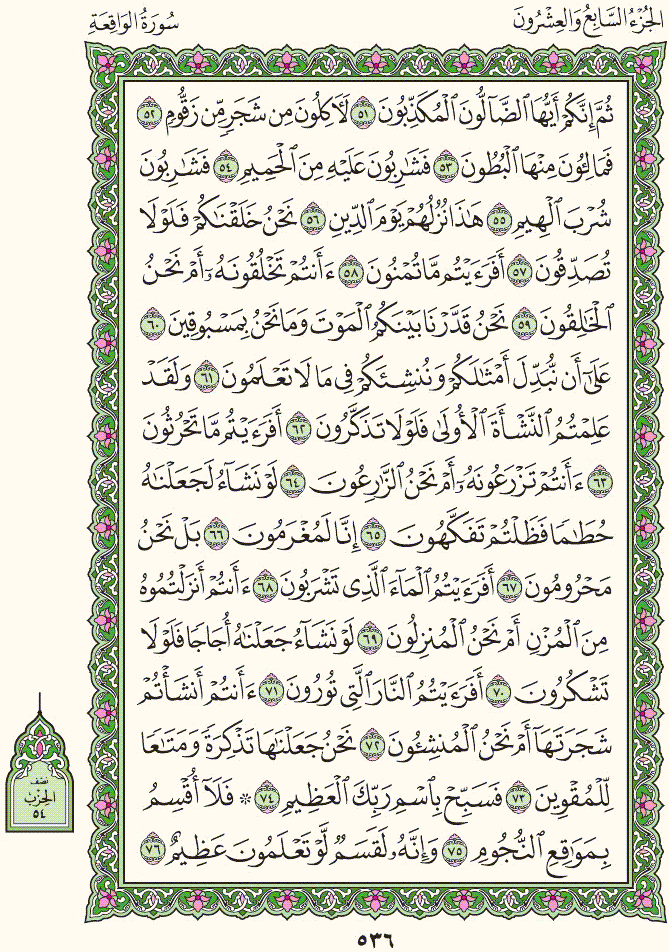 الجُزْءُ السَّابِعُ وَالعِشْرُونَ
سُورَةُ الوَاقِعَةِ
ثُمَّ إِنَّكُمْ أَيُّهَا ٱلضَّآلُّونَ ٱلْمُكَذِّبُونَ ٥١ لَأٓكِلُونَ مِن شَجَرٍ مِّن زَقُّومٍ ٥٢
فَمَالِـُٔونَ مِنْهَا ٱلْبُطُونَ ٥٣ فَشَٰرِبُونَ عَلَيْهِ مِنَ ٱلْحَمِيمِ ٥٤ فَشَٰرِبُونَ
شُرْبَ ٱلْهِيمِ ٥٥ هَٰذَا نُزُلُهُمْ يَوْمَ ٱلدِّينِ ٥٦ نَحْنُ خَلَقْنَٰكُمْ فَلَوْلَا
تُصَدِّقُونَ ٥٧ أَفَرَءَيْتُم مَّا تُمْنُونَ ٥٨ ءَأَنتُمْ تَخْلُقُونَهُۥٓ أَمْ نَحْنُ
ٱلْخَٰلِقُونَ ٥٩ نَحْنُ قَدَّرْنَا بَيْنَكُمُ ٱلْمَوْتَ وَمَا نَحْنُ بِمَسْبُوقِينَ ٦٠
عَلَىٰٓ أَن نُّبَدِّلَ أَمْثَٰلَكُمْ وَنُنشِئَكُمْ فِى مَا لَا تَعْلَمُونَ ٦١ وَلَقَدْ
عَلِمْتُمُ ٱلنَّشْأَةَ ٱلْأُولَىٰ فَلَوْلَا تَذَكَّرُونَ ٦٢ أَفَرَءَيْتُم مَّا تَحْرُثُونَ
٦٣ ءَأَنتُمْ تَزْرَعُونَهُۥٓ أَمْ نَحْنُ ٱلزَّٰرِعُونَ ٦٤ لَوْ نَشَآءُ لَجَعَلْنَٰهُ
حُطَٰمًا فَظَلْتُمْ تَفَكَّهُونَ ٦٥ إِنَّا لَمُغْرَمُونَ ٦٦ بَلْ نَحْنُ
مَحْرُومُونَ ٦٧ أَفَرَءَيْتُمُ ٱلْمَآءَ ٱلَّذِى تَشْرَبُونَ ٦٨ ءَأَنتُمْ أَنزَلْتُمُوهُ
مِنَ ٱلْمُزْنِ أَمْ نَحْنُ ٱلْمُنزِلُونَ ٦٩ لَوْ نَشَآءُ جَعَلْنَٰهُ أُجَاجًا فَلَوْلَا
تَشْكُرُونَ ٧٠ أَفَرَءَيْتُمُ ٱلنَّارَ ٱلَّتِى تُورُونَ ٧١ ءَأَنتُمْ أَنشَأْتُمْ
شَجَرَتَهَآ أَمْ نَحْنُ ٱلْمُنشِـُٔونَ ٧٢ نَحْنُ جَعَلْنَٰهَا تَذْكِرَةً وَمَتَٰعًا
لِّلْمُقْوِينَ ٧٣ فَسَبِّحْ بِٱسْمِ رَبِّكَ ٱلْعَظِيمِ ٧٤ ۞ فَلَآ أُقْسِمُ
بِمَوَٰقِعِ ٱلنُّجُومِ ٧٥ وَإِنَّهُۥ لَقَسَمٌ لَّوْ تَعْلَمُونَ عَظِيمٌ ٧٦
نصف
الحزب
٥٤
٥٣٦